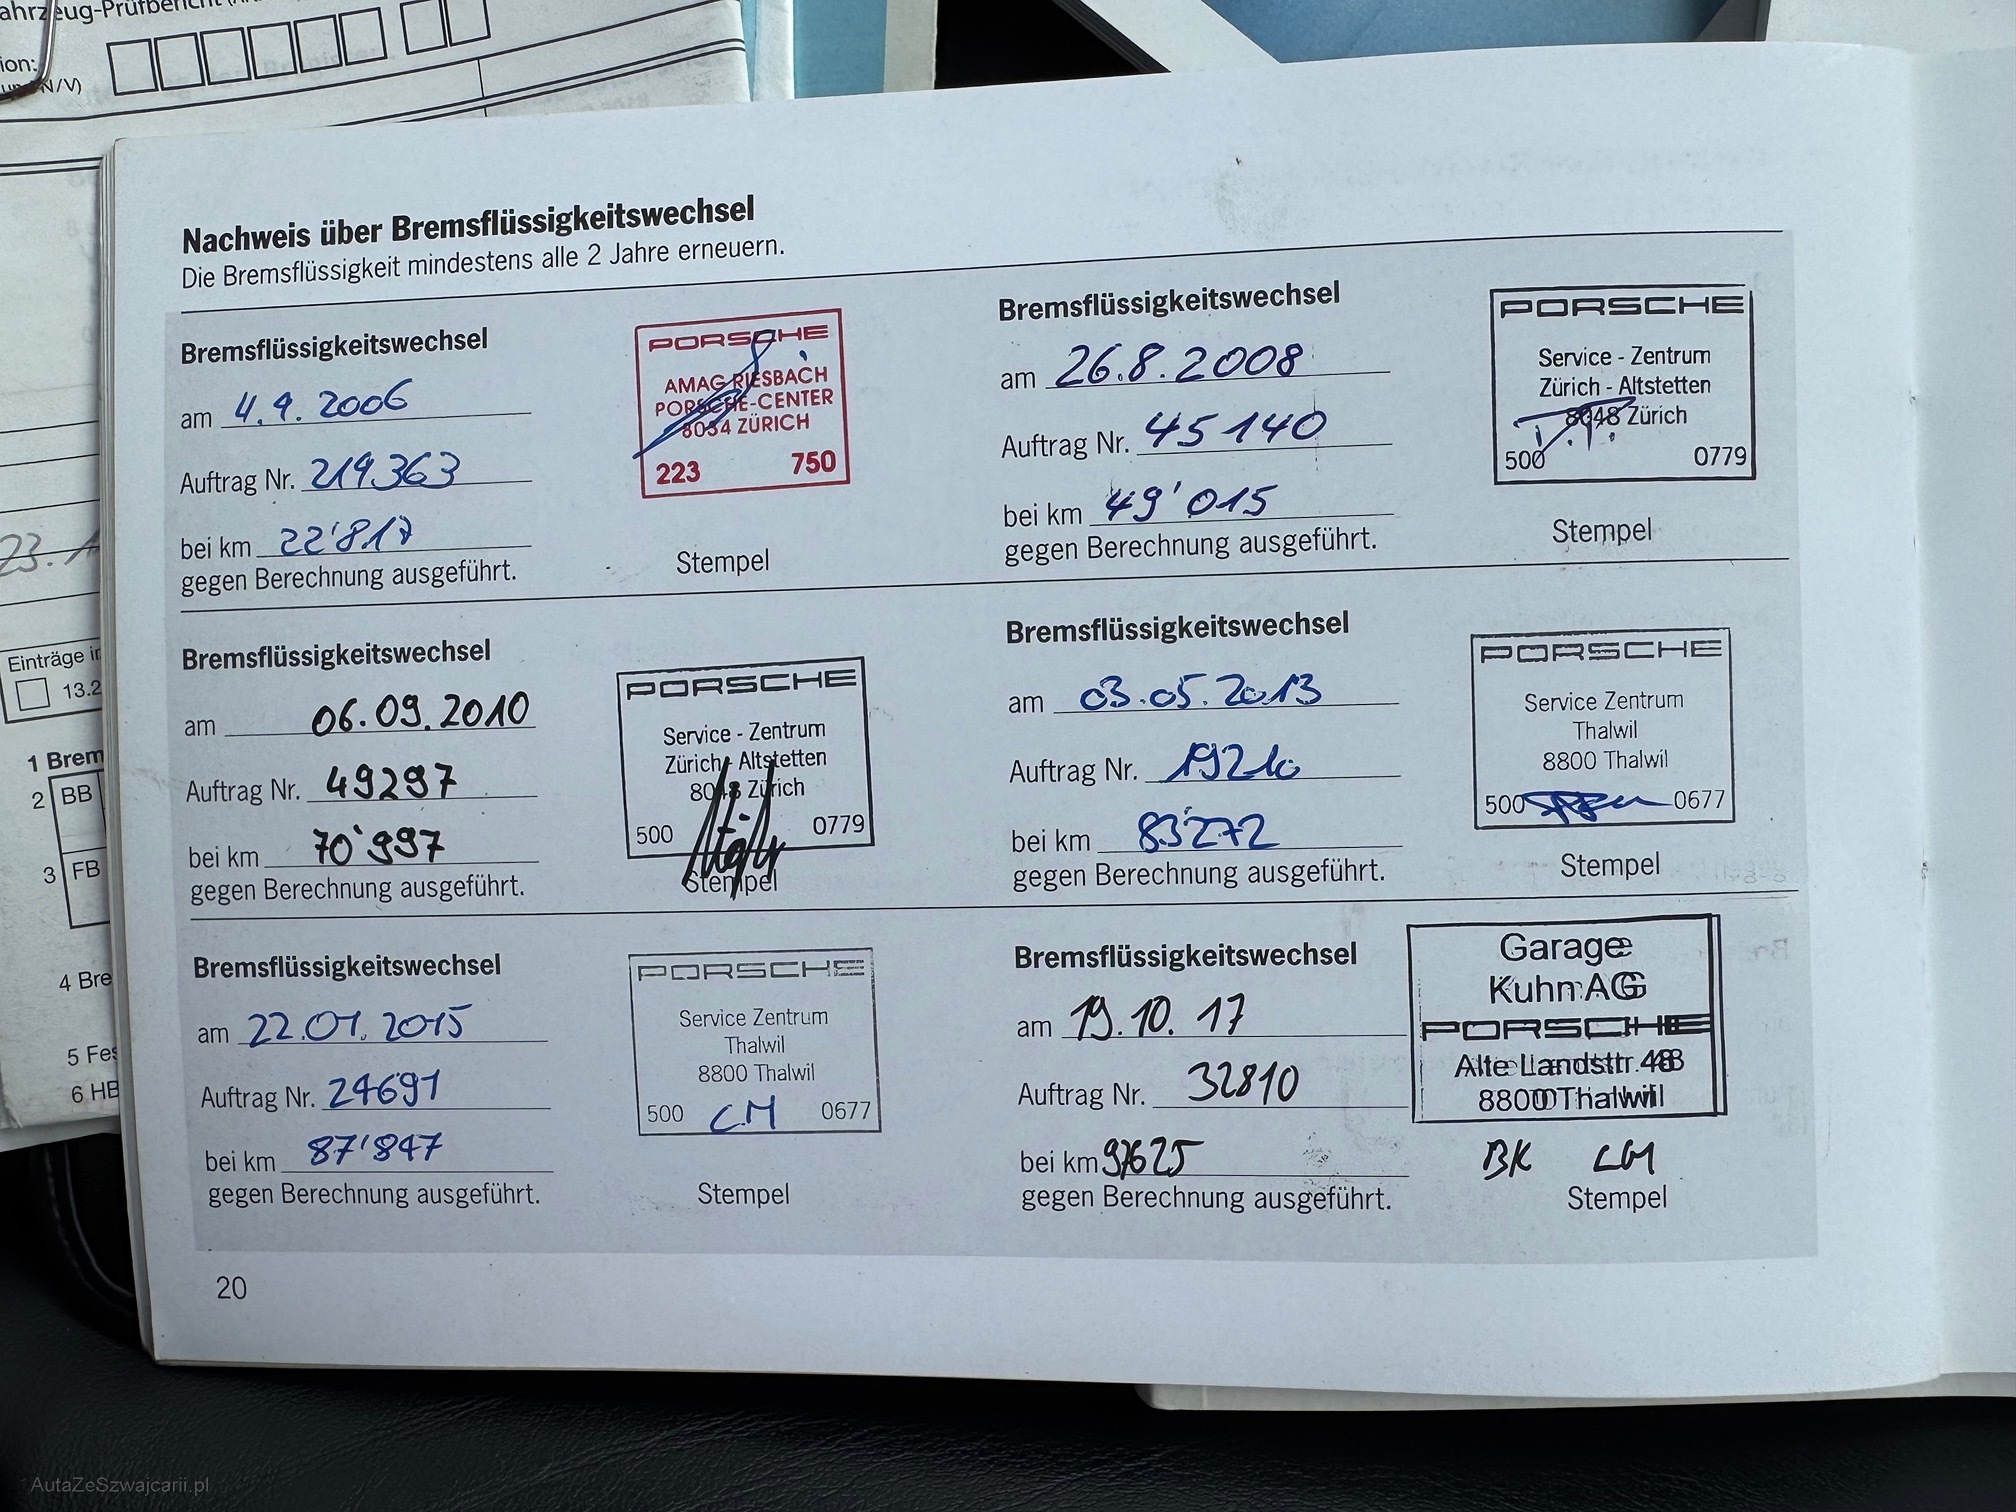 ahrzeug-Prüfbericht
ion:
N/V)
Nachweis über Bremsflüssigkeitswechsel
Die Bremsflüssigkeit mindestens alle 2 Jahre erneuern.
Bremsflüssigkeitswechsel
am 4.9.2006
Auftrag Nr. 219363
bei km 22'817
gegen Berechnung ausgeführt.
PORSCHE
AMAG RIESBACH
PORSCHE-CENTER
8034 ZÜRICH
223 750
Stempel
Bremsflüssigkeitswechsel
am 26.8.2008
Auftrag Nr. 45140
bei km 49'015
gegen Berechnung ausgeführt.
PORSCHE
Service - Zentrum
Zürich - Altstetten
8048 Zürich
500 0779
Stempel
Bremsflüssigkeitswechsel
am 06.09.2010
Auftrag Nr. 49297
bei km 70'997
gegen Berechnung ausgeführt.
PORSCHE
Service - Zentrum
Zürich - Altstetten
8048 Zürich
500 0779
Stempel
Bremsflüssigkeitswechsel
am 03.05.2013
Auftrag Nr. 19210
bei km 83'272
gegen Berechnung ausgeführt.
PORSCHE
Service Zentrum
Thalwil
8800 Thalwil
500 0677
Stempel
Bremsflüssigkeitswechsel
am 22.01.2015
Auftrag Nr. 24691
bei km 87'847
gegen Berechnung ausgeführt.
PORSCHE
Service Zentrum
Thalwil
8800 Thalwil
500 CM 0677
Stempel
Bremsflüssigkeitswechsel
am 19.10.17
Auftrag Nr. 32810
bei km 97625
gegen Berechnung ausgeführt.
Garage
Kuhn AG
PORSCHE
Alte Landstr. 48
8800 Thalwil
BK CM
Stempel
20
23.1
Einträge in
13.2
1 Brem
2 BB
3 FB
4 Bre
5 Fes
6 HB
AutaZeSzwajcarii.pl